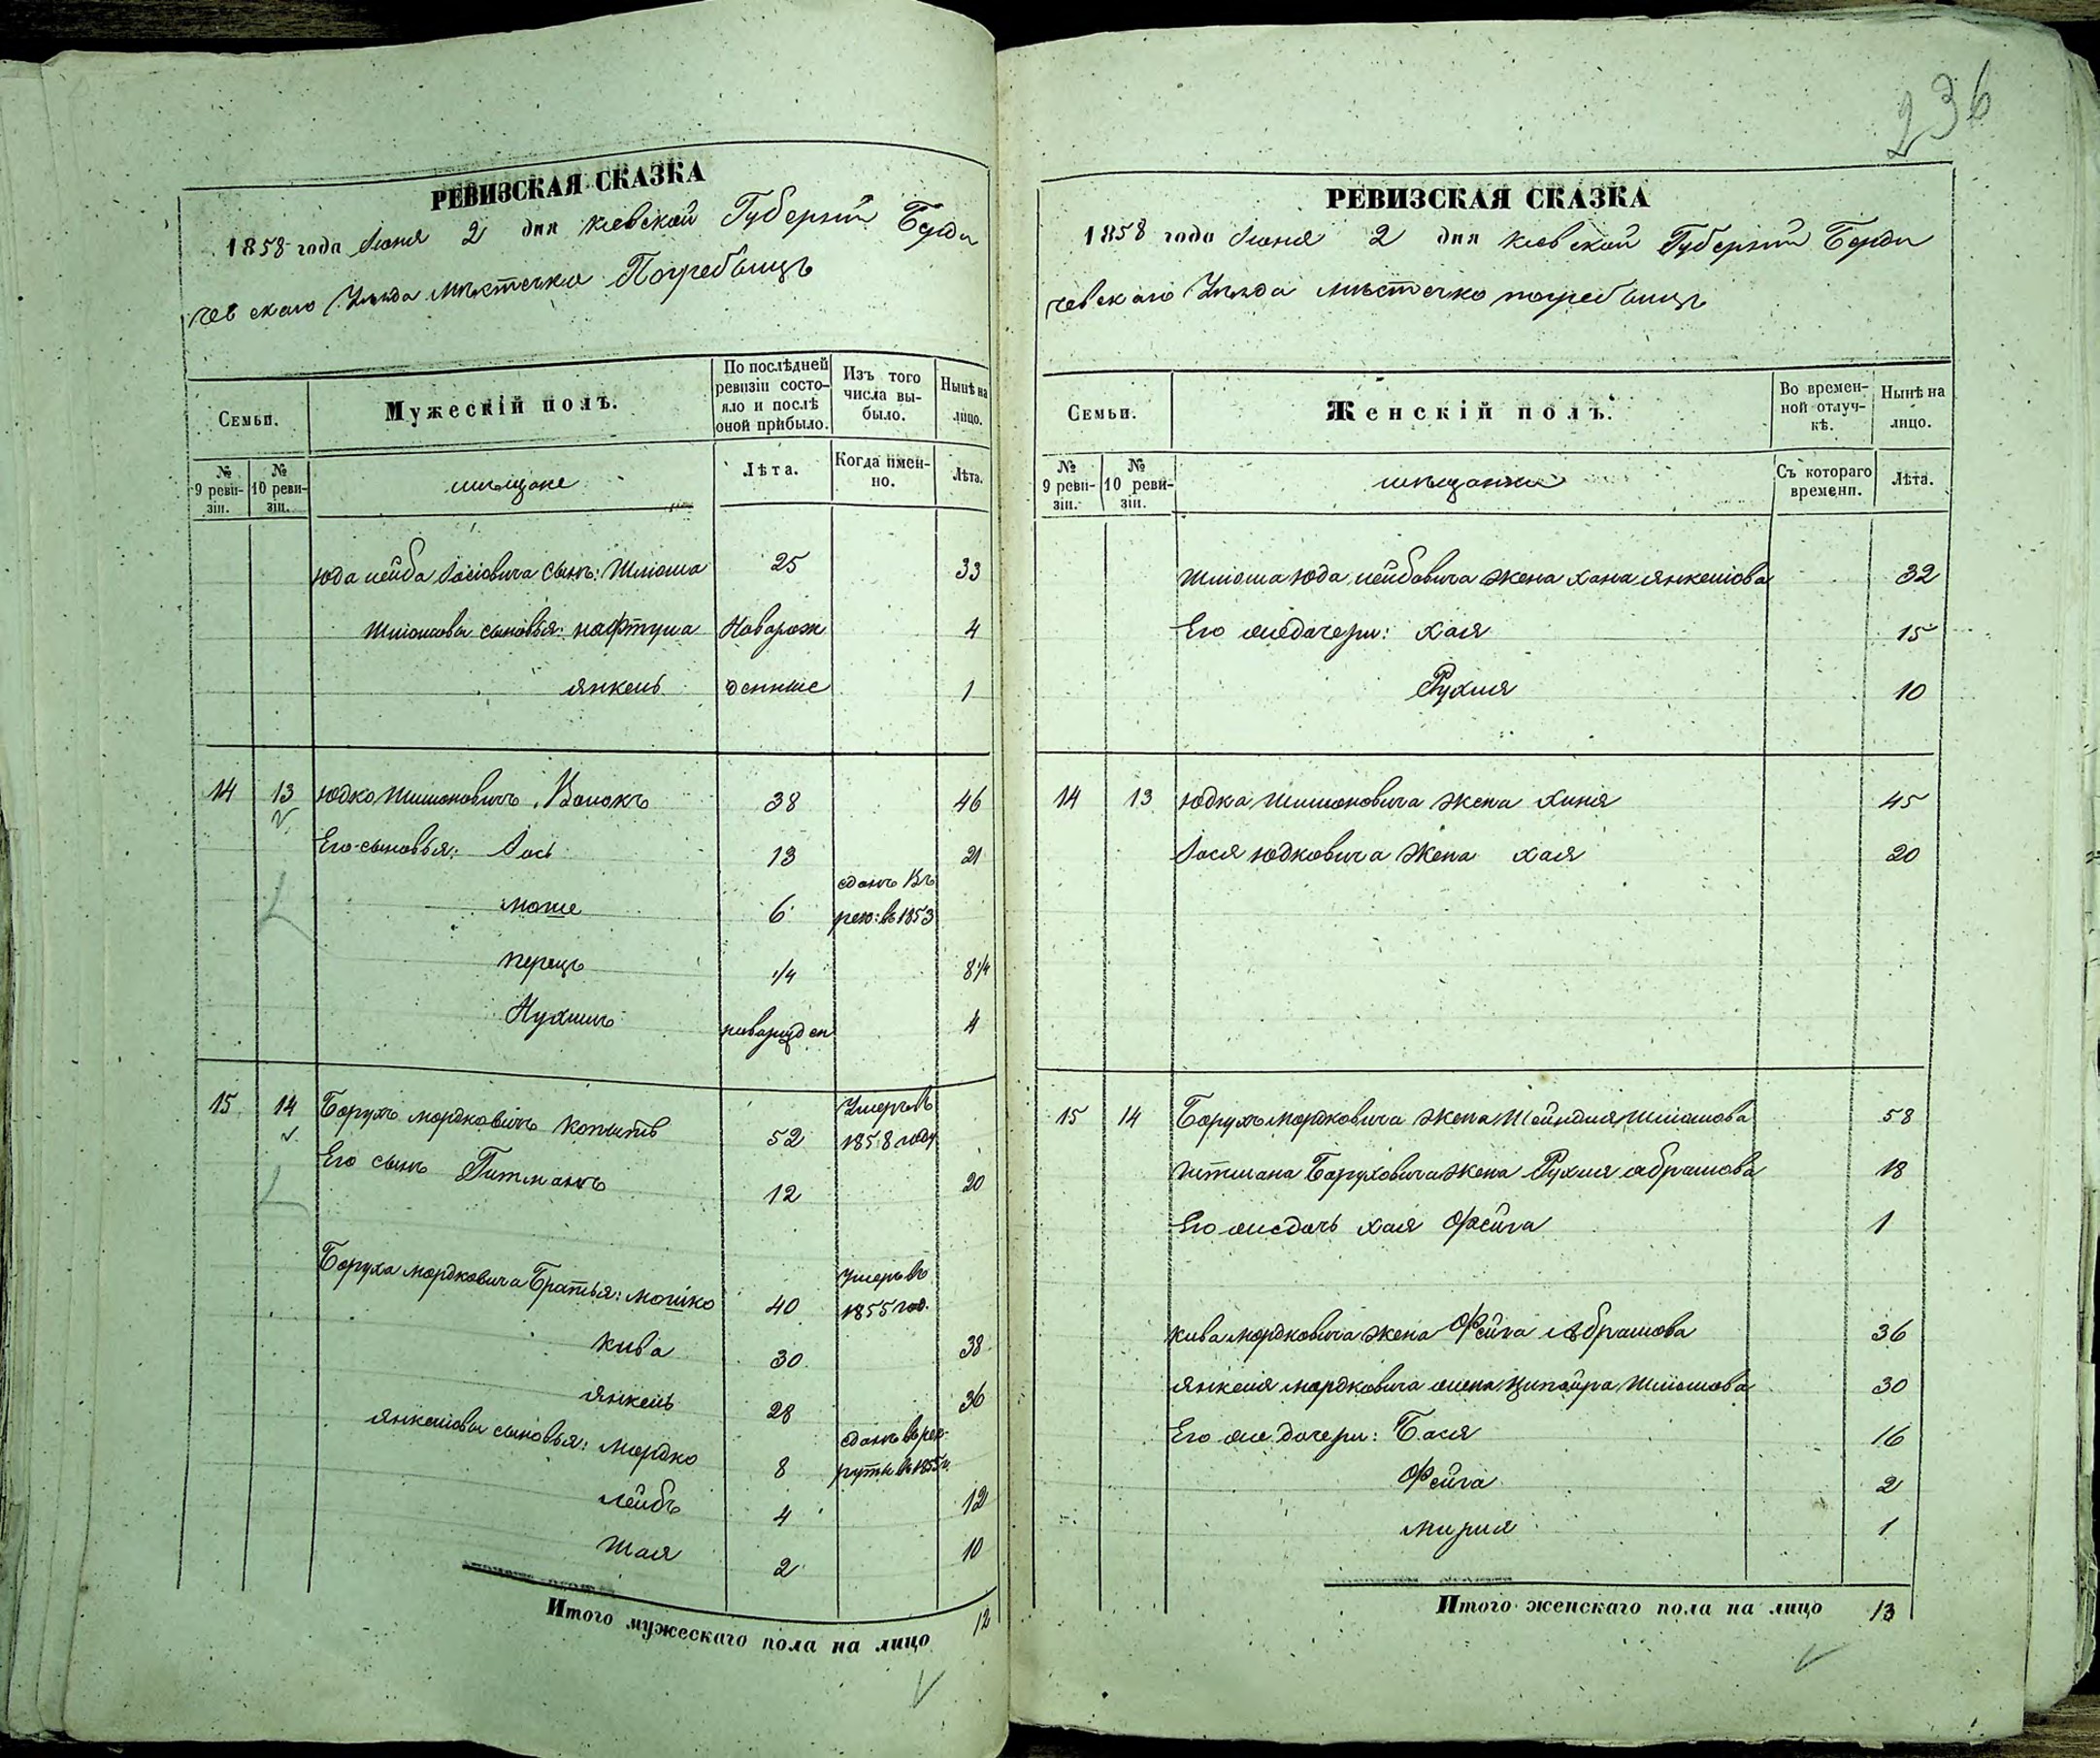 236
РЕВИЗСКАЯ СКАЗКА
1858 года Іюня 2 дня Кіевской Губерніи Берди
чевскаго Уѣзда мѣстечка Погребищъ
Семьи.
Мужескій полъ.
По послѣдней ревизіи состояло и послѣ оной прибыло.
Изъ того числа выбыло.
Нынѣ на лицо.
№ 9 ревизіи.
№ 10 ревизіи.
мѣщане
Лѣта.
Когда именно.
Лѣта.
Юда Лейба Іосіовича сынъ: Шліома 25 33
Шліомовы сыновья: Нафтула Новорож 4
Янкель денные 1
14 13 Юдко Шимоновичъ Волокъ 38 46
Его сыновья: Іось 13 21
Моше 6 сданъ въ рек: въ 1853
Перецъ 1/4 8 1/4
Нухимъ новорожден 4
15 14 Борухъ Мордковичъ Копытъ 52 Умеръ въ 1858 году
Его сынъ Питманъ 12 20
Боруха Мордковича Братья: Мошко 40 умеръ въ 1855 год.
Кива 30 38
Янкель 28 36
Янкелювы сыновья: Мордко 8 сданъ въ рекруты въ 1855 г.
Лейбъ 4 12
Шая 2 10
Итого мужескаго пола на лицо 12
РЕВИЗСКАЯ СКАЗКА
1858 года Іюня 2 дня Кіевской Губерніи Берди
чевскаго Уѣзда мѣстечка Погребищъ
Семьи.
Женскій полъ.
Во временной отлучкѣ.
Нынѣ на лицо.
№ 9 ревизіи.
№ 10 ревизіи.
мѣщанки
Съ котораго времени.
Лѣта.
Шліома Юда Лейбовича жена Хана Янкелюва 32
Его же дочери: Хая 15
Рухля 10
14 13 Юдка Шимоновича жена Хиня 45
Іося Юдковича жена Хая 20
15 14 Борухъ Мордковича жена Шейндля Шліомова 58
Питмана Боруховича жена Рухля Абрамова 18
Его же дочь Хая Фейга 1
Кива Мордковича жена Фейга Абрамова 36
Янкеля Мордковича жена Ципойра Шліомова 30
Его же дочери: Бася 16
Фейга 2
Мирля 1
Итого женскаго пола на лицо 13